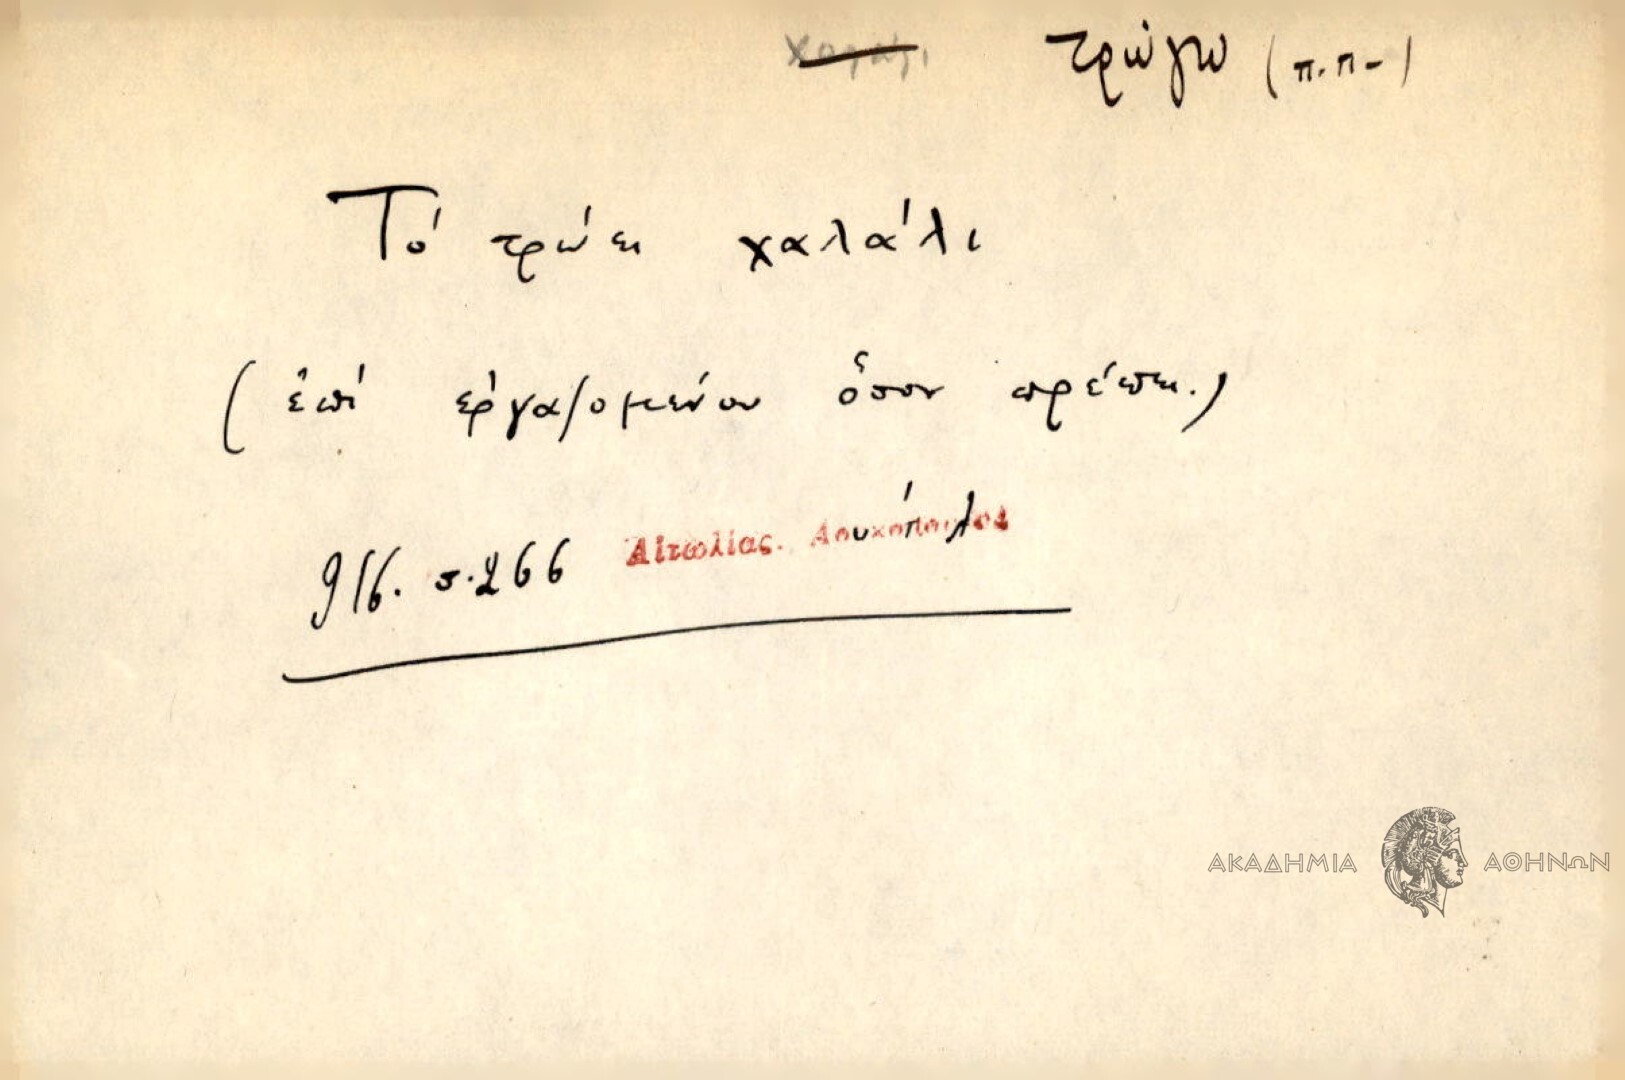 τρώγω (π.π-)
Τό τρώει χαλάλι
(ἐπί ἐργαζομένου ὅσον πρέπει.)
916. σ.266 Αἰτωλίας. Λουκόπουλος
ΑΚΑΔΗΜΙΑ ΑΘΗΝΩΝ